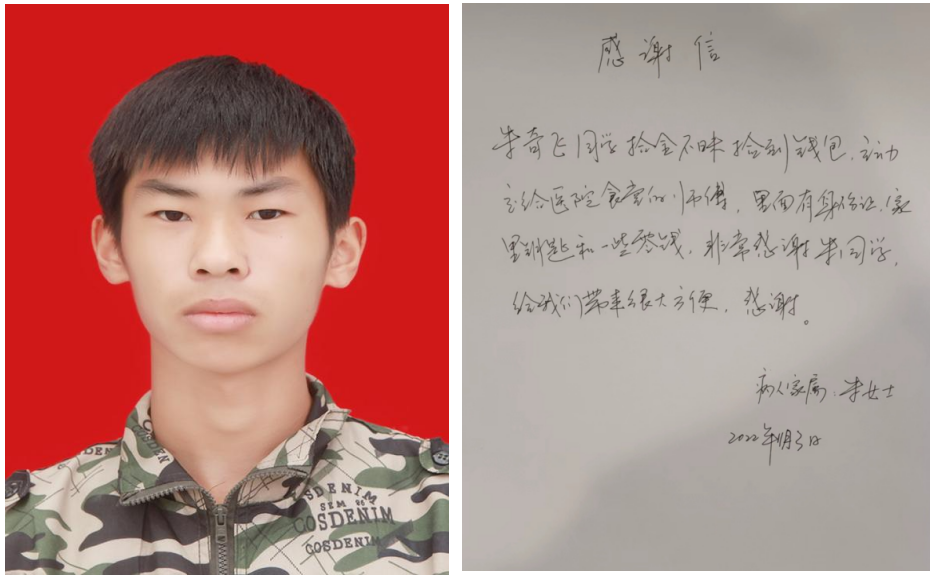 DEN
COSDENIM
SEM
COSDENIM
COSDENIM
感谢信
朱奇飞同学拾金不昧拾到钱包,主动
交给医院食堂的师傅,里面有身份证、家
里钥匙和一些零钱,非常感谢朱同学,
给我们带来很大方便,感谢。
病人家属:朱女士
2022年11月3日